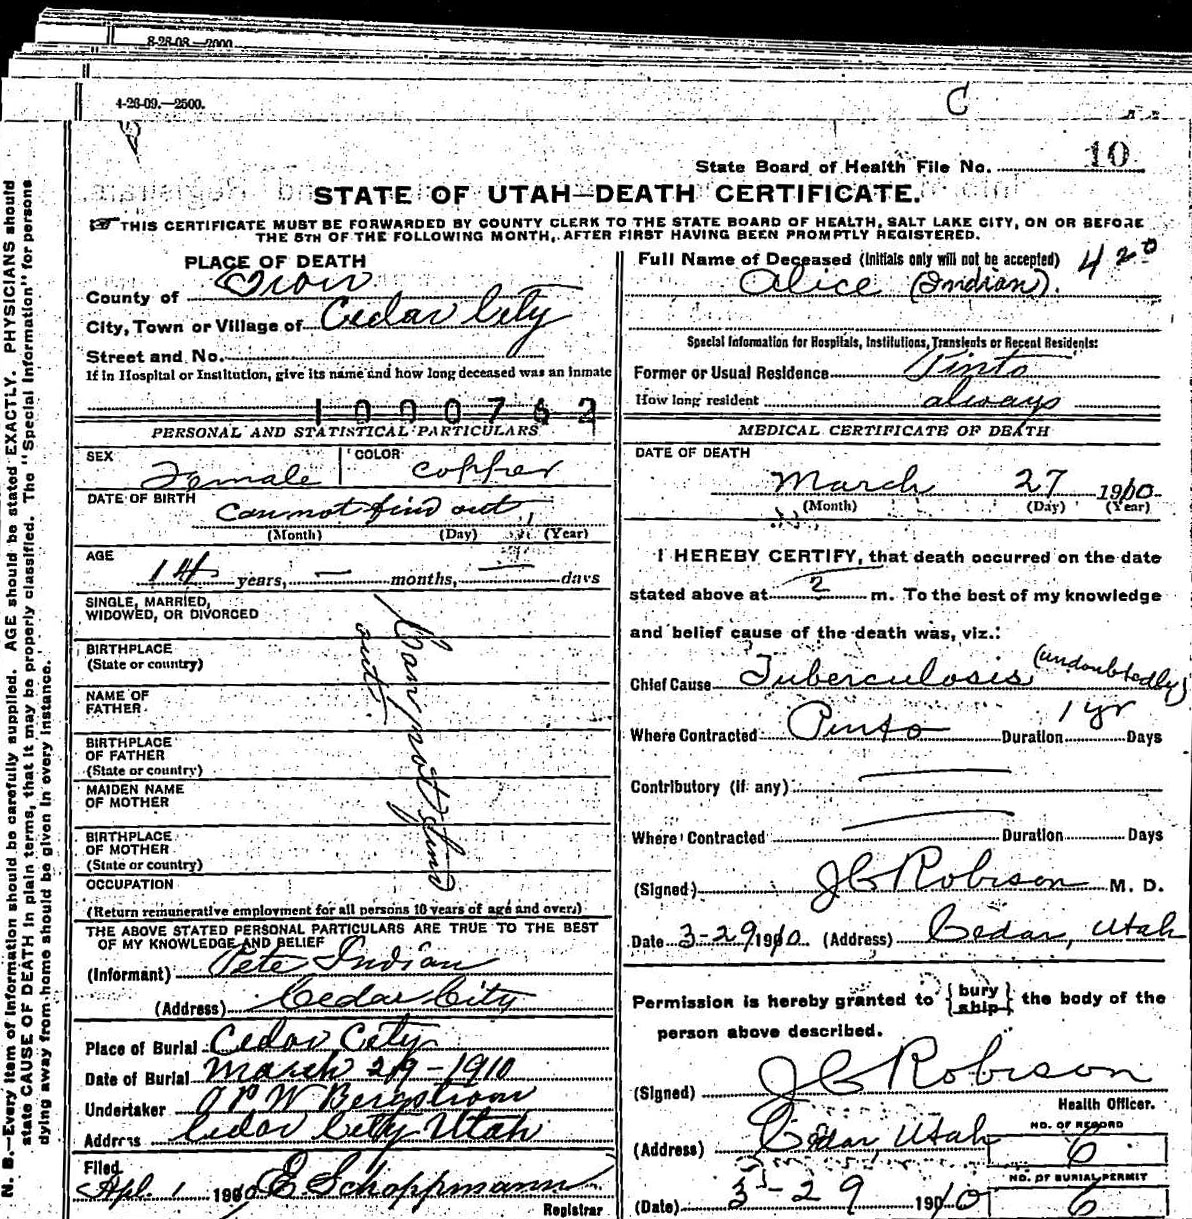 8-28-08-2000
4-26-09.—2500.
C
State Board of Health File No. 10
STATE OF UTAH—DEATH CERTIFICATE.
THIS CERTIFICATE MUST BE FORWARDED BY COUNTY CLERK TO THE STATE BOARD OF HEALTH, SALT LAKE CITY, ON OR BEFORE
THE 5TH OF THE FOLLOWING MONTH, AFTER FIRST HAVING BEEN PROMPTLY REGISTERED.
N. B.—Every item of information should be carefully supplied. AGE should be stated EXACTLY. PHYSICIANS should
state CAUSE OF DEATH in plain terms, that it may be properly classified. The "Special Information" for persons
dying away from home should be given in every instance.
PLACE OF DEATH
County of Iron
City, Town or Village of Cedar City
Street and No.
If in Hospital or Institution, give its name and how long deceased was an inmate
1000762
PERSONAL AND STATISTICAL PARTICULARS
SEX Female COLOR copper
DATE OF BIRTH cannot find out
(Month) (Day) (Year)
AGE
14 years, — months, — days
SINGLE, MARRIED,
WIDOWED, OR DIVORCED
BIRTHPLACE
(State or country)
NAME OF
FATHER
BIRTHPLACE
OF FATHER
(State or country)
MAIDEN NAME
OF MOTHER
BIRTHPLACE
OF MOTHER
(State or country)
Can not find
out
OCCUPATION
(Return remunerative employment for all persons 10 years of age and over.)
THE ABOVE STATED PERSONAL PARTICULARS ARE TRUE TO THE BEST
OF MY KNOWLEDGE AND BELIEF
(Informant) Pete Indian
(Address) Cedar City
Place of Burial Cedar City
Date of Burial March 29-1910
Undertaker W Bergstrom
Address Cedar City Utah
Filed
Apl. 1 1910 E. Schoppmann
Registrar
Full Name of Deceased (Initials only will not be accepted) 420
Alice (Indian).
Special Information for Hospitals, Institutions, Transients or Recent Residents:
Former or Usual Residence Pinto
How long resident always
MEDICAL CERTIFICATE OF DEATH
DATE OF DEATH
March 27 1910
(Month) (Day) (Year)
I HEREBY CERTIFY, that death occurred on the date
stated above at 2 m. To the best of my knowledge
and belief cause of the death was, viz.:
Chief Cause Tuberculosis (undoubtedly)
Where Contracted Pinto Duration 1 yr Days
Contributory (if any)
Where Contracted Duration Days
(Signed) J C Robison M. D.
Date 3-29 1910 (Address) Cedar, Utah
Permission is hereby granted to {bury ship} the body of the
person above described.
(Signed) J C Robison
Health Officer.
(Address) Cedar, Utah
NO. OF RECORD
6
(Date) 3-29 1910
NO. OF BURIAL PERMIT
6